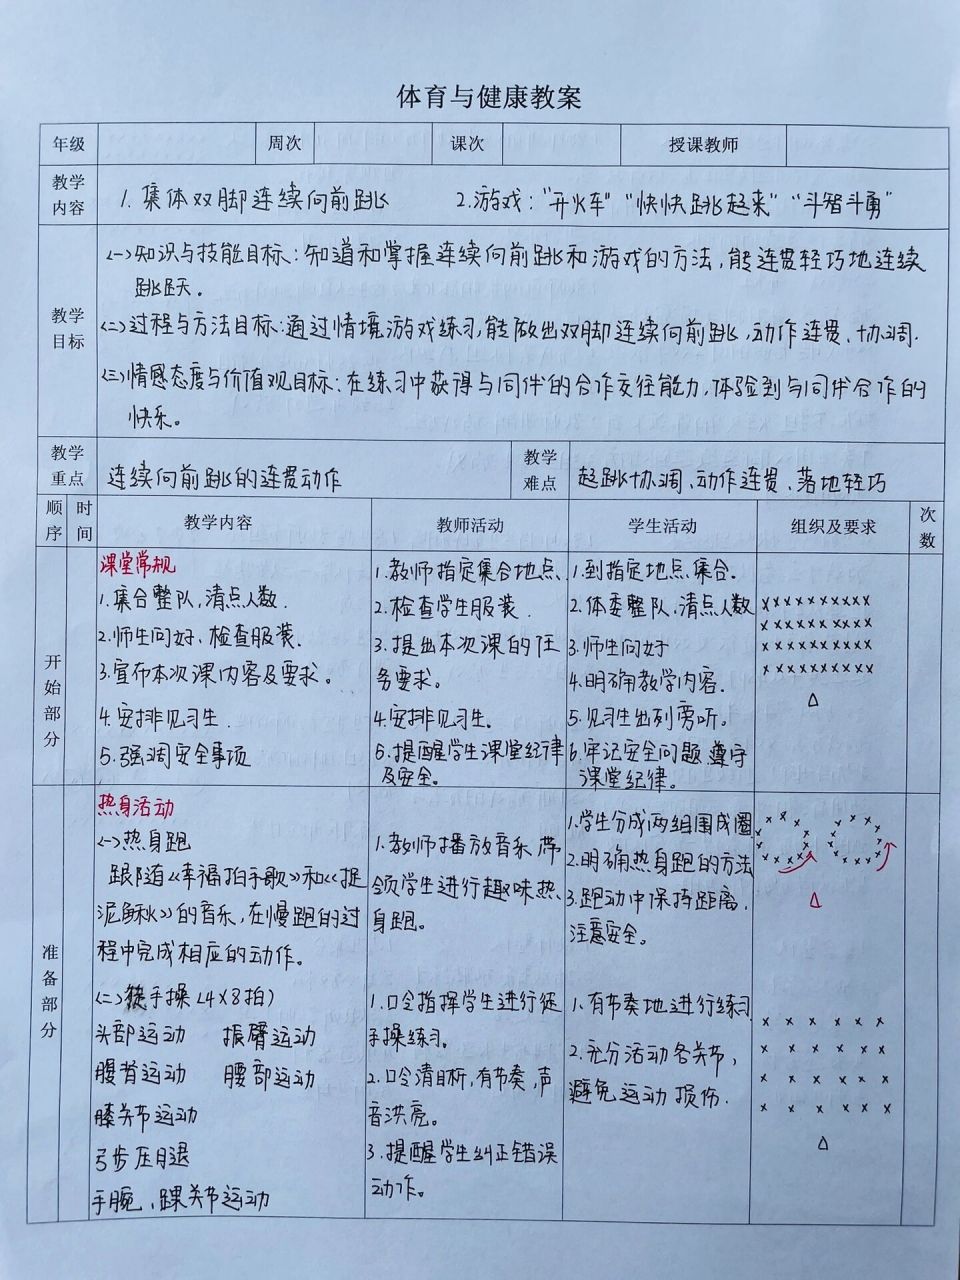 体育与健康教案
年级 周次 课次 授课教师
教学内容
1. 集体双脚连续向前跳 2.游戏："开火车" "快快跳起来" "斗智斗勇"
教学目标
(一)知识与技能目标：知道和掌握连续向前跳和游戏的方法，能连贯轻巧地连续
跳跃。
(二)过程与方法目标：通过情境游戏练习，能做出双脚连续向前跳，动作连贯、协调.
(三)情感态度与价值观目标：在练习中获得与同伴的合作交往能力，体验到与同伴合作的
快乐。
教学重点
连续向前跳的连贯动作
教学难点
起跳协调、动作连贯、落地轻巧
顺序 时间 教学内容 教师活动 学生活动 组织及要求 次数
开始部分
课堂常规
1.集合整队，清点人数.
2.师生问好、检查服装.
3.宣布本次课内容及要求。
4.安排见习生.
5.强调安全事项
1.教师指定集合地点
2.检查学生服装.
3.提出本次课的任
务要求。
4.安排见习生。
5.提醒学生课堂纪律
及安全。
1.到指定地点集合.
2.体委整队、清点人数
3.师生问好
4.明确教学内容.
5.见习生出列旁听。
6.牢记安全问题,遵守
课堂纪律。
x x x x x x x x x x
x x x x x x x x x x
x x x x x x x x x x
x x x x x x x x x x
△
准备部分
热身活动
(一)热身跑
跟随《幸福拍手歌》和《捉
泥鳅》的音乐，在慢跑的过
程中完成相应的动作。
(二)徒手操(4×8拍)
头部运动 振臂运动
腹背运动 腰部运动
膝关节运动
弓步压腿
手腕、踝关节运动
1.教师播放音乐,带
领学生进行趣味热
身跑。
1.口令指挥学生进行徒
手操练习。
2.口令清晰,有节奏,声
音洪亮。
3.提醒学生纠正错误
动作。
1.学生分成两组围成圈
2.明确热身跑的方法
3.跑动中保持距离,
注意安全。
1.有节奏地进行练习
2.充分活动各关节，
避免运动损伤.
△
x x x x x x
x x x x x x
x x x x x x
x x x x x x
△